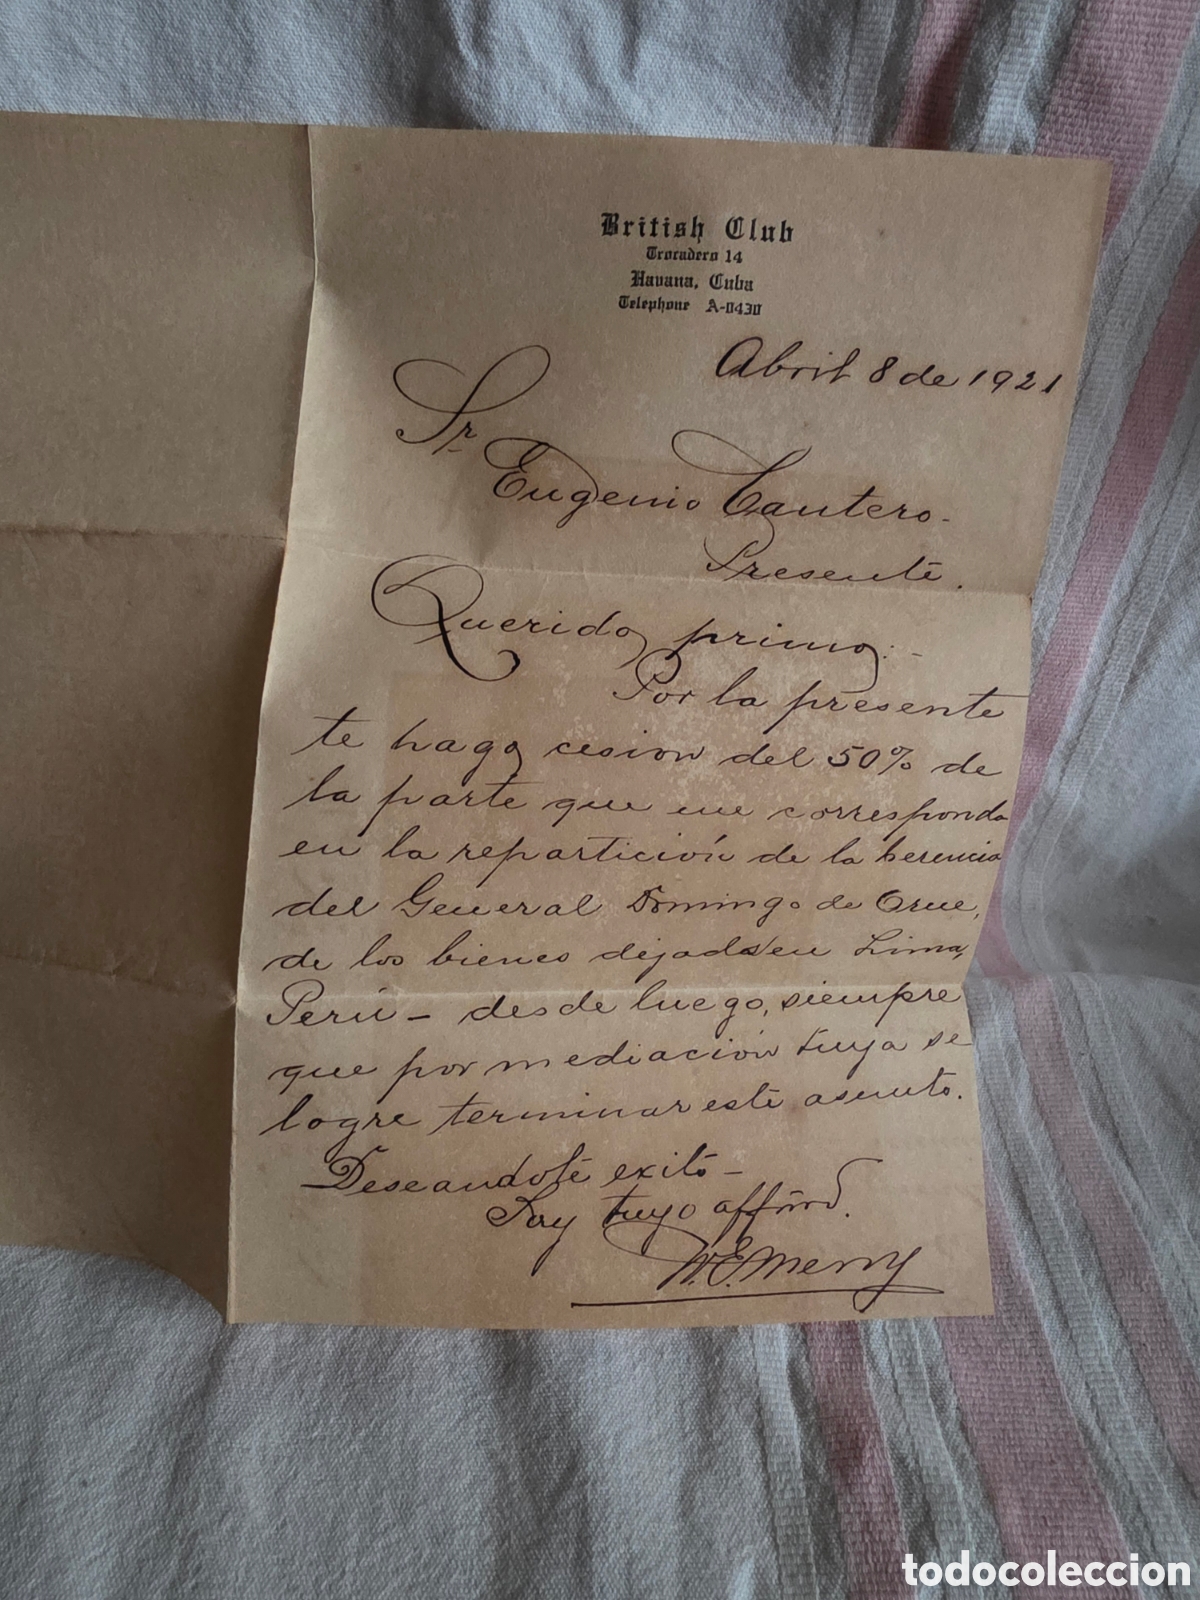 British Club
Trocadero 14
Havana, Cuba
Telephone A-0430
Abril 8 de 1921
Sr.
Eugenio Cantero.
Presente.
Querido primo:-
Por la presente
te hago cesion del 50% de
la parte que me corresponda
en la repartición de la herencia
del General Domingo de Orue,
de los bienes dejados en Lima,
Perú - desde luego, siempre
que por mediación tuya se
logre terminar este asunto.
Deseandote exito -
Soy tuyo affmo.
W. E. Merry
todocoleccion